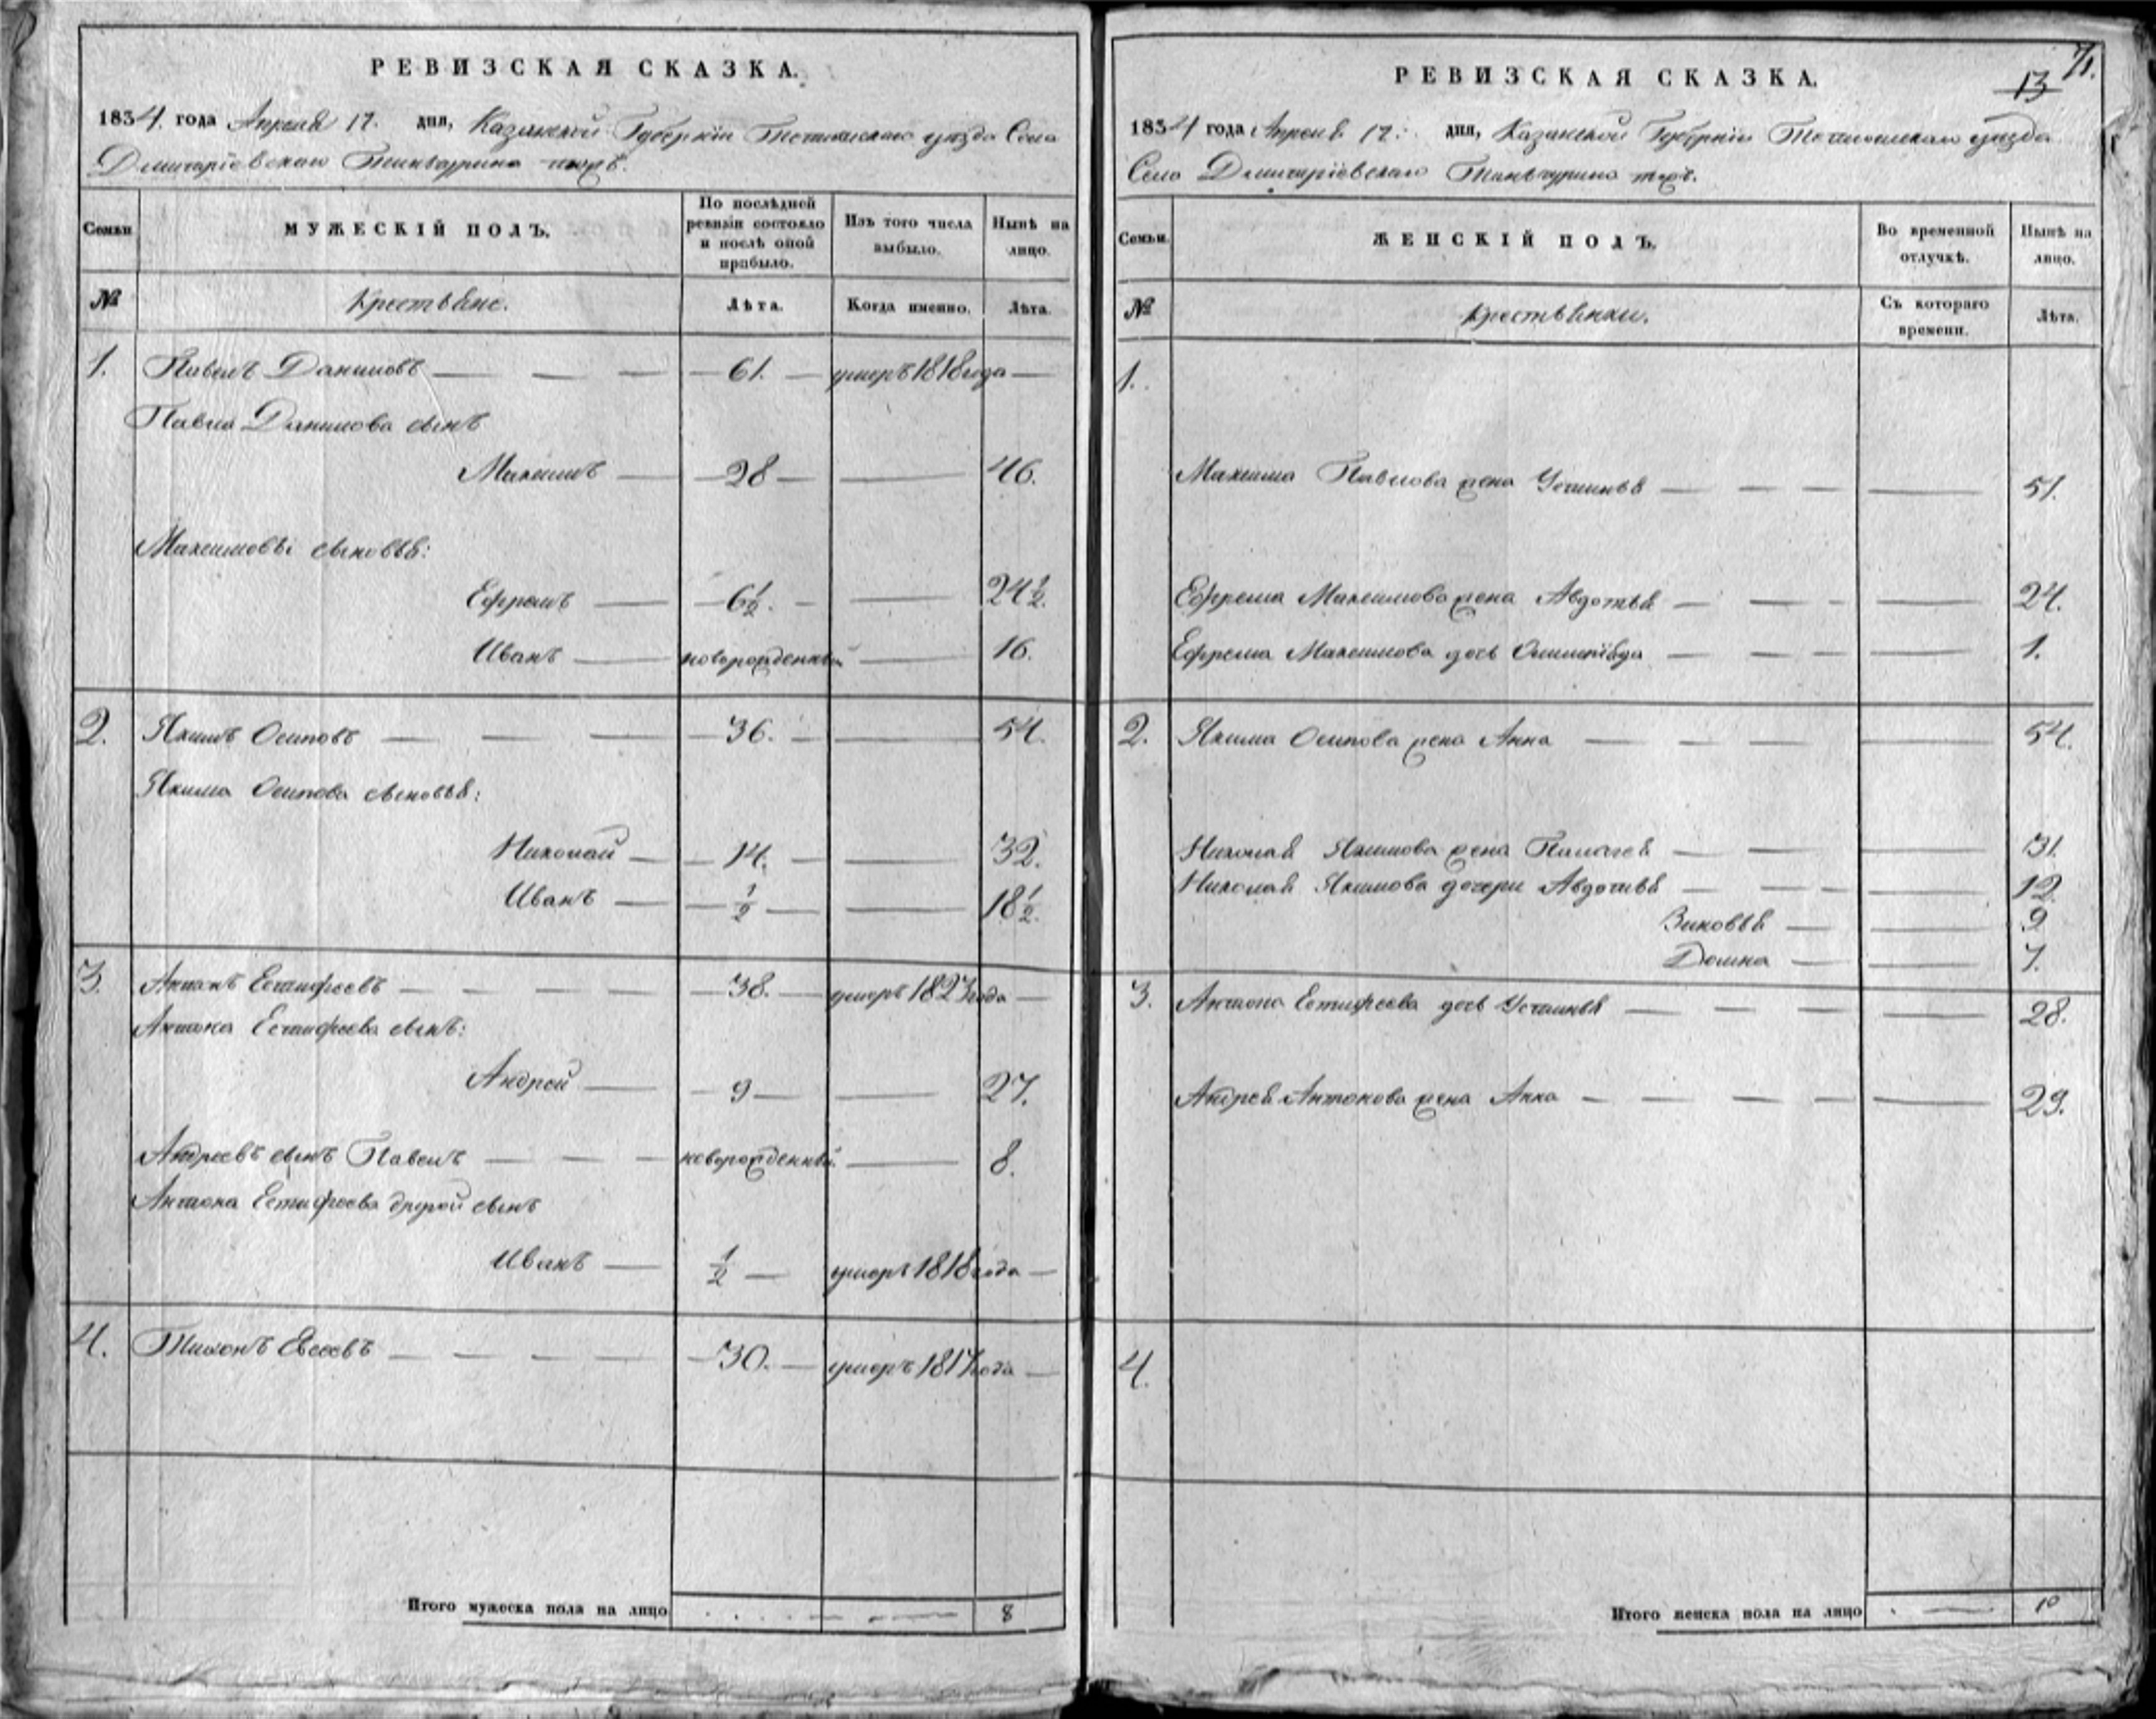 РЕВИЗСКАЯ СКАЗКА.
1834 года Апреля 17. дня, Казанской Губернiи Тетюшскаго уѣзда Села
Дмитрiевскаго Тинчурина тожъ.
Семьи
МУЖЕСКIЙ ПОЛЪ.
По послѣдней ревизiи состояло и послѣ оной прибыло.
Изъ того числа выбыло.
Нынѣ на лицо.
№
Крестьяне.
Лѣта.
Когда именно.
Лѣта.
1. Павелъ Даниловъ — 61. — умеръ 1818 года —
Павла Данилова сынъ
Максимъ — 28 — 46.
Максимовы сыновья:
Ефремъ — 6½. — 24½.
Иванъ — новорожденный — 16.
2. Якимъ Осиповъ — 36. — 54.
Якима Осипова сыновья:
Николай — 14. — 32.
Иванъ — ½ — 18½.
3. Антонъ Естифеевъ — 38. — умеръ 1823 года —
Антона Естифеева сынъ:
Андрей — 9 — 27.
Андреевъ сынъ Павелъ — новорожденный. — 8.
Антона Естифеева другой сынъ
Иванъ — ½ — умеръ 1818 года —
4. Тихонъ Евсеевъ — 30. — умеръ 1817 года —
Итого мужеска пола на лицо 8
71.
13
РЕВИЗСКАЯ СКАЗКА.
1834 года Апреля 17. дня, Казанской Губернiи Тетюшскаго уѣзда
Села Дмитрiевскаго Тинчурина тожъ.
Семьи.
ЖЕНСКIЙ ПОЛЪ.
Во временной отлучкѣ.
Нынѣ на лицо.
№
Крестьянки.
Съ котораго времени.
Лѣта.
1.
Максима Павлова жена Устинья — 51.
Ефрема Максимова жена Авдотья — 24.
Ефрема Максимова дочь Олимпiяда — 1.
2. Якима Осипова жена Анна — 54.
Николая Якимова жена Палагея — 31.
Николая Якимова дочери Авдотья — 12.
Зиновья — 9
Домна — 7.
3. Антона Естифеева дочь Устинья — 28.
Андрея Антонова жена Анна — 29.
4.
Итого женска пола на лицо 10